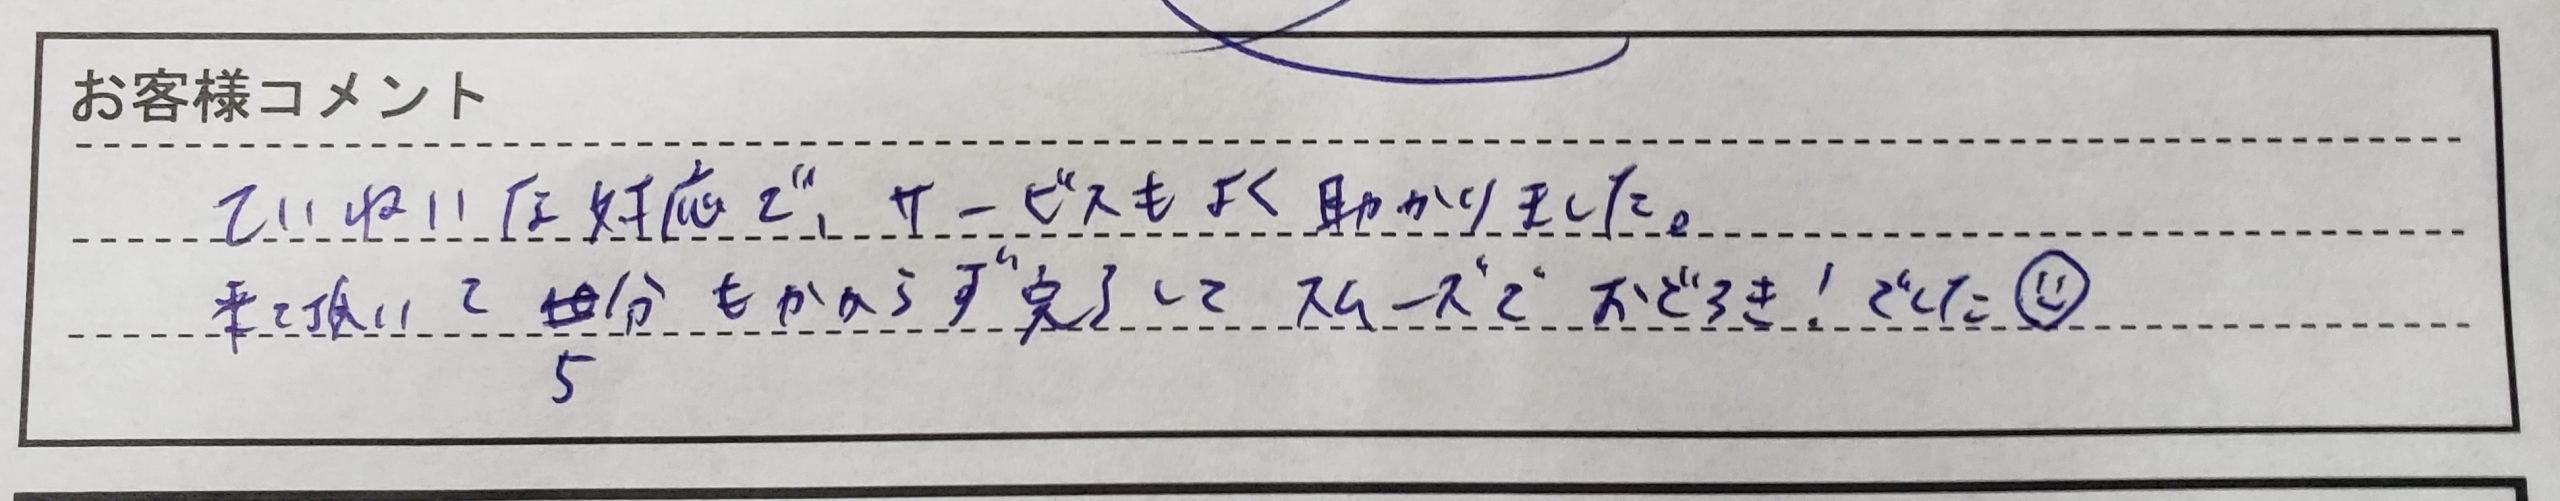 お客様コメント
ていねいな対応で、サービスもよく助かりました。
来て頂いて5分もかからず完了してスムーズでおどろき!でした